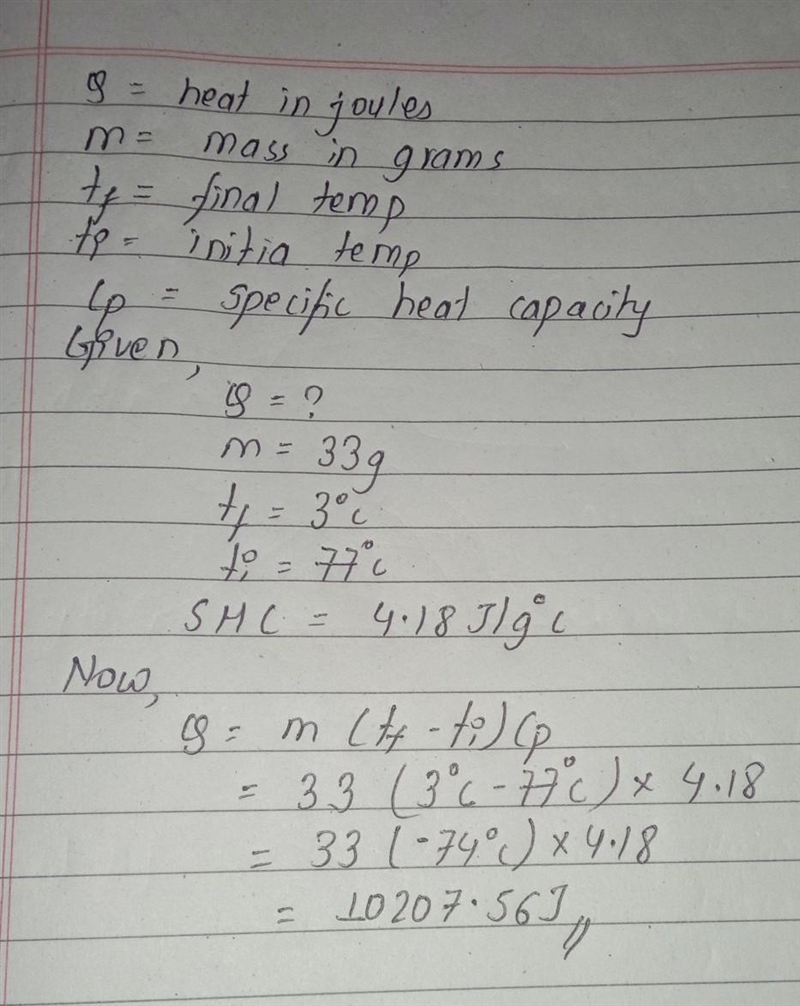 Q = heat in joules
m = mass in grams
tf = final temp
ti = initia temp
Cp = specific heat capacity
Given,
Q = ?
m = 33g
tf = 3°c
ti = 77°c
SHC = 4.18 J/g°c
Now,
Q = m (tf - ti) Cp
= 33 (3°c - 77°c) × 4.18
= 33 (-74°c) × 4.18
= 10207.56J